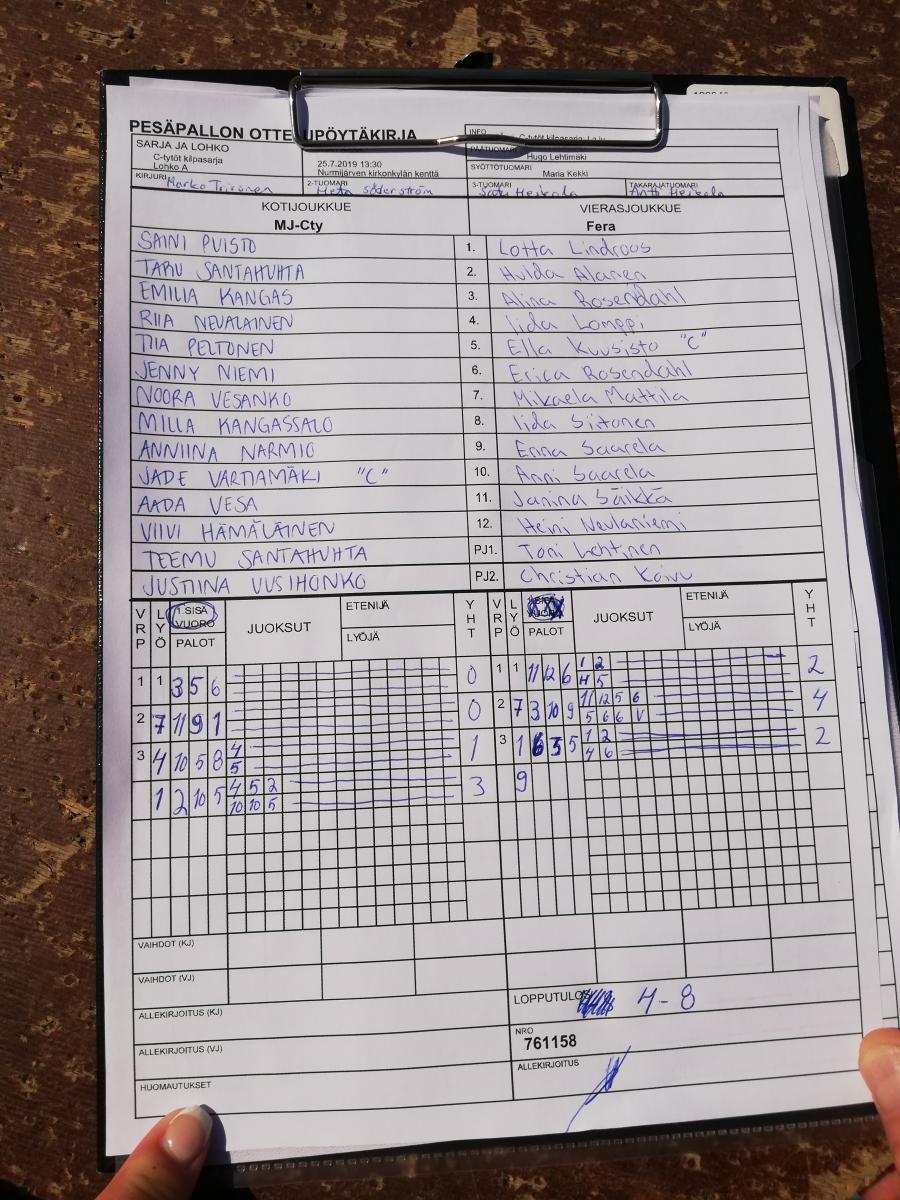 PESÄPALLON OTTE UPÖYTÄKIRJA
INFO
C-tytöt kilpasarja:
SARJA JA LOHKO
C-tytöt kilpasarja
Lohko A
25.7.2019 13:30
Nurmijärven kirkonkylän kenttä
PÄÄTUOMARI
Hugo Lehtimäki
SYÖTTÖTUOMARI
Maria Kekki
KIRJURI
Marko
2-TUOMARI
Söderström
3-TUOMARI
Satu Heikola
TAKARAJATUOMARI
Antti Heikola
KOTIJOUKKUE VIERASJOUKKUE
MJ-Cty Fera
SAINI PUISTO 1. Lotta Lindroos
TARU SANTAHUHTA 2. Hulda Alanen
EMILIA KANGAS 3. Alina Rosendahl
RIIA NEVALAINEN 4. Iida Lomppi
TIIA PELTONEN 5. Ella Kuusisto "C"
JENNY NIEMI 6. Erica Rosendahl
NOORA VESANKO 7. Mikaela Mattila
MILLA KANGASSALO 8. Iida Siitonen
ANNIINA NARMIO 9. Enna Saarela
JADE VARTIAMÄKI "C" 10. Anni Saarela
AADA VESA 11. Janina Säikkä
VIIVI HÄMÄLÄINEN 12. Heini Neulaniemi
TEEMU SANTAHUHTA PJ1. Toni Lehtinen
JUSTIINA UUSIHONKO PJ2. Christian Koivu
VRP LYÖ 1.SISÄ VUORO PALOT JUOKSUT ETENIJÄ LYÖJÄ YHT VRP LYÖ PALOT JUOKSUT ETENIJÄ LYÖJÄ YHT
1 1 3 5 6 0 1 1 11 12 6 1 2 2
4 5
2 7 11 9 1 0 2 7 3 10 9 11 12 5 6 4
5 6 6 V
3 4 10 5 8 4 1 3 1 6 3 5 1 2 2
5 4 6
1 2 10 5 4 5 2 3 9
10 10 5
VAIHDOT (KJ)
VAIHDOT (VJ)
ALLEKIRJOITUS (KJ)
LOPPUTULOS 4-8
ALLEKIRJOITUS (VJ)
NRO
761158
HUOMAUTUKSET
ALLEKIRJOITUS